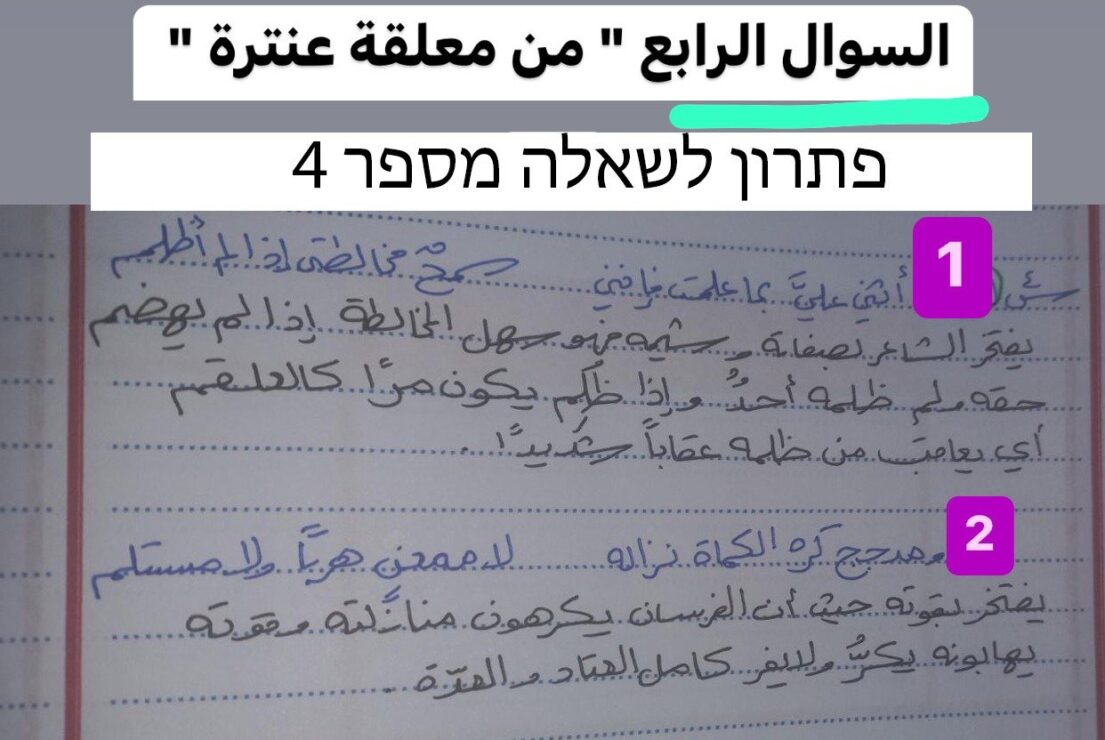 السوال الرابع " من معلقة عنترة "
פתרון לשאלה מספר 4
1
س أثني عليَّ بما علمت فإنني سمحٌ مخالطتي إذا لم أُظلم
يفتخر الشاعر بصفاته وشيمه فهو سهل المخالطة إذا لم يهضم
حقه ولم يظلمه أحدٌ وإذا ظُلم يكون مرًّا كالعلقم
أي يعاقب من ظلمه عقاباً شديدًا.
2
ومدجج كره الكماة نزاله لا ممعنٍ هربًا ولا مستسلم
يفتخر بقوته حيث أن الفرسان يكرهون منازلته وقوته
يهابونه يكرُّ ولا يفر كامل العتاد والعدّة.